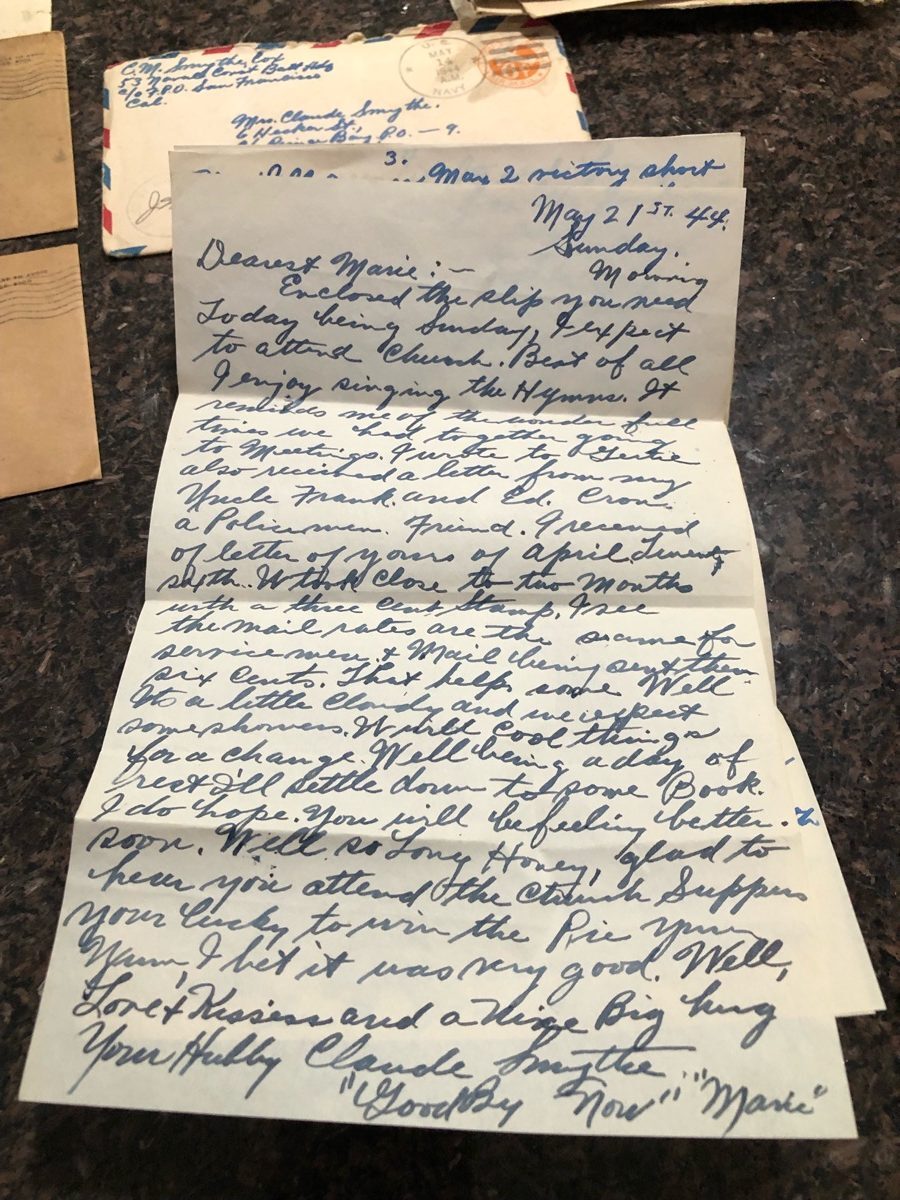 C. M. Smythe Cox
53 Naval Const Batt Hdq
c/o F.P.O. San Francisco
Cal.
U.S.
MAY
NAVY
Mrs. Claude Smythe.
6 Hecker St.
P.O. – 9.
3.
May 2 victory short
May 21ST. 44.
Sunday.
Morning
Dearest Marie:–
Enclosed the slip you need
Today being Sunday, I expect
to attend Church. Best of all
I enjoy singing the Hymns. It
reminds me of the wonder full
times we had together going
to Meetings. I wrote to Gertie
also received a letter from my
Uncle Frank. and Ed. Cron.
a Policeman. Friend. I received
of letter of yours of April Twenty
sixth. It took close to two Months
with a three cent Stamp. I see
the mail rates are the same for
service men. & Mail being sent them
six cents. That helps some Well
Its a little cloudy and we expect
some showers. It will cool things
for a change. Well being a day of
rest I'll settle down to some Book.
I do hope. You will be feeling better.
soon. Well so Long Honey, glad to
hear you attend the Church Suppers
your lucky to win the Pie Yum
Yum, I bet it was very good. Well,
Love & Kissess and a Nice Big hug
Your Hubby Claude Smythe
"Good By Now" "Marie"